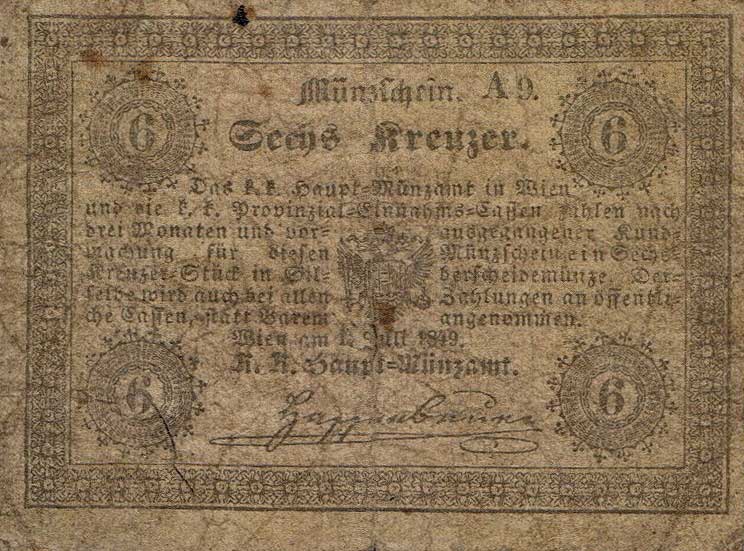 6 Münzschein. A 9. 6
Sechs Kreuzer.
Das k. k. Haupt-Münzamt in Wien
und die k. k. Provinzial-Einnahms-Cassen zahlen nach
drei Monaten und vor- ausgegangener Kund-
machung für diesen Münzschein ein Sechs
Kreuzer-Stück in Sil- berscheidemünze Der-
selbe wird auch bei allen Zahlungen an öffentli-
che Cassen, statt Barem angenommen.
Wien am 1. Juli 1849.
K. K. Haupt-Münzamt.
6 6